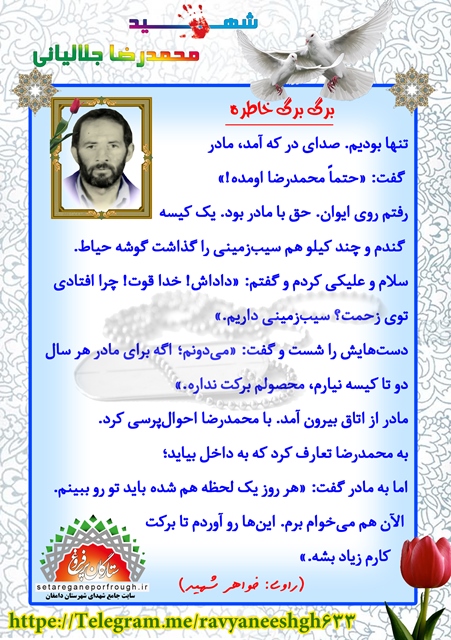 شهید
محمدرضا جلالیانی
برگ برگ خاطره
تنها بودیم. صدای در که آمد، مادر
گفت: «حتماً محمدرضا اومده!»
رفتم روی ایوان. حق با مادر بود. یک کیسه
گندم و چند کیلو هم سیب‌زمینی را گذاشت گوشه حیاط.
سلام و علیکی کردم و گفتم: «داداش! خدا قوت! چرا افتادی
توی زحمت؟ سیب‌زمینی داریم.»
دست‌هایش را شست و گفت: «می‌دونم؛ اگه برای مادر هر سال
دو تا کیسه نیارم، محصولم برکت نداره.»
مادر از اتاق بیرون آمد. با محمدرضا احوال‌پرسی کرد.
به محمدرضا تعارف کرد که به داخل بیاید؛
اما به مادر گفت: «هر روز یک لحظه هم شده باید تو رو ببینم.
الآن هم می‌خوام برم. این‌ها رو آوردم تا برکت
کارم زیاد بشه.»
(راوی: خواهر شهید)
ستارگان پرفروغ
setareganeporfrough.ir
سایت جامع شهدای شهرستان دامغان
https://Telegram.me/ravyaneeshgh۶۳۳